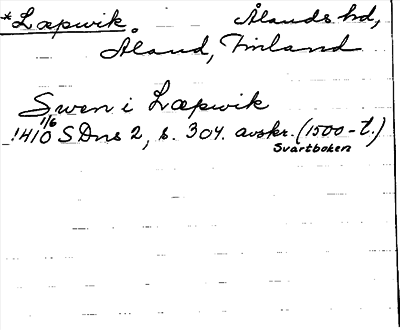 *Læpwik Ålands hd,
Åland, Finland
Swen i Læpwik
1410 1/6 SDns 2, s. 304. avskr. (1500-t.)
Svartboken